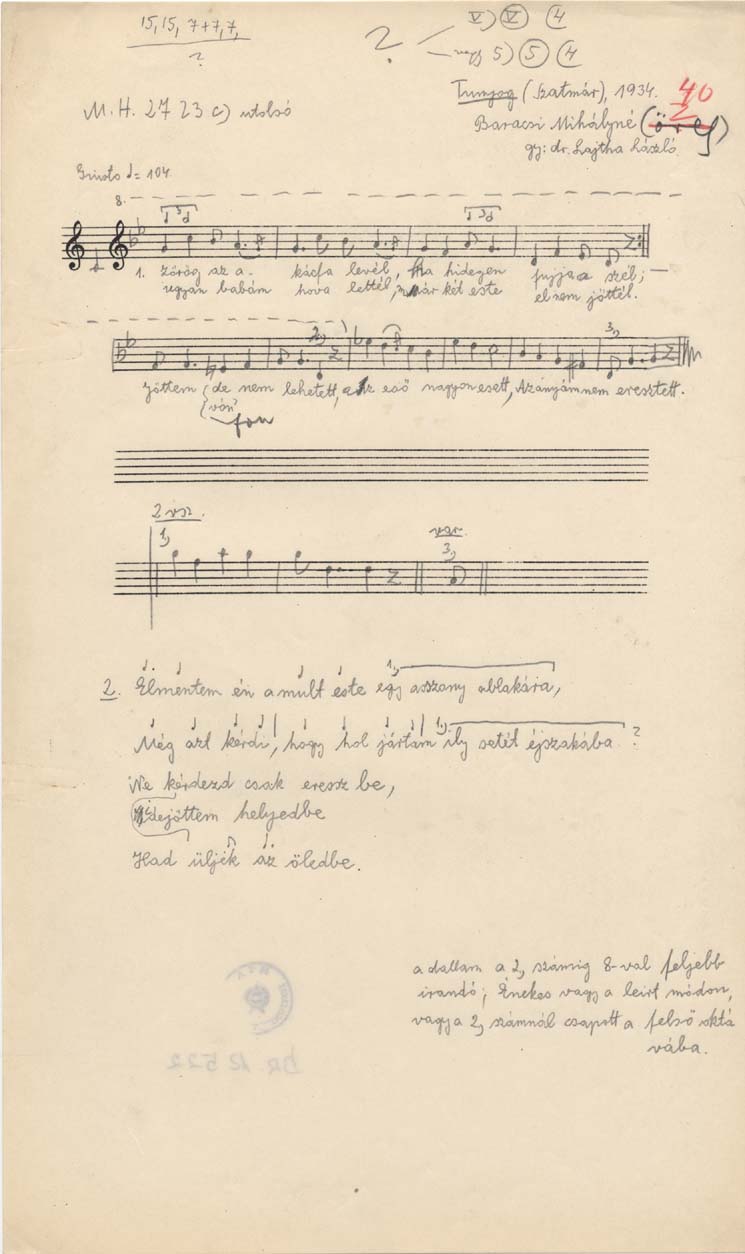 15, 15, 7+7, 7,
?
? V) V 4
nagy 5) 5 4
M. H. 2723 c) utolsó
Tunyog (Szatmár), 1934. 40
Baracsi Mihályné (öreg)
gy: dr. Lajtha László.
Giusto = 104
8.
3 3
1. Zörög az a- kácfa levél, Ha hidegen fujja a szél;
ugyan babám hova lettél, már két este el nem jöttél.
2, 3,
Jöttem de nem lehetett, az eső nagyon esett, Az anyám nem eresztett.
vón
fon
2 vsz. var.
1, 3,
1,
2. Elmentem én a mult este egy asszony ablakára,
1,
Még azt kérdi, hogy hol jártam ily setét éjszakába ?
Ne kérdezd csak eressz be,
idejöttem helyedbe
Had üljék az öledbe.
a dallam a 2, számig 8-val feljebb
irandó; Énekes vagy a leirt módon,
vagy a 2, számnál csapott a felső oktá
vába.
BR 12522